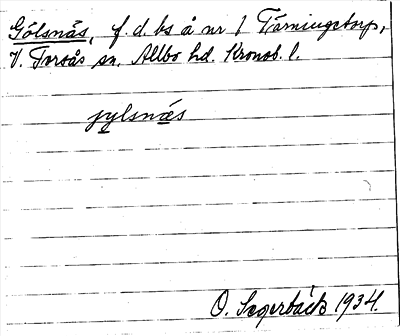 Gölsnäs, f. d. bs å nr 1 Tärningetorp,
V. Torsås sn. Allbo hd. Kronob. l.
jylsnæs
O. Segerbäck 1934.